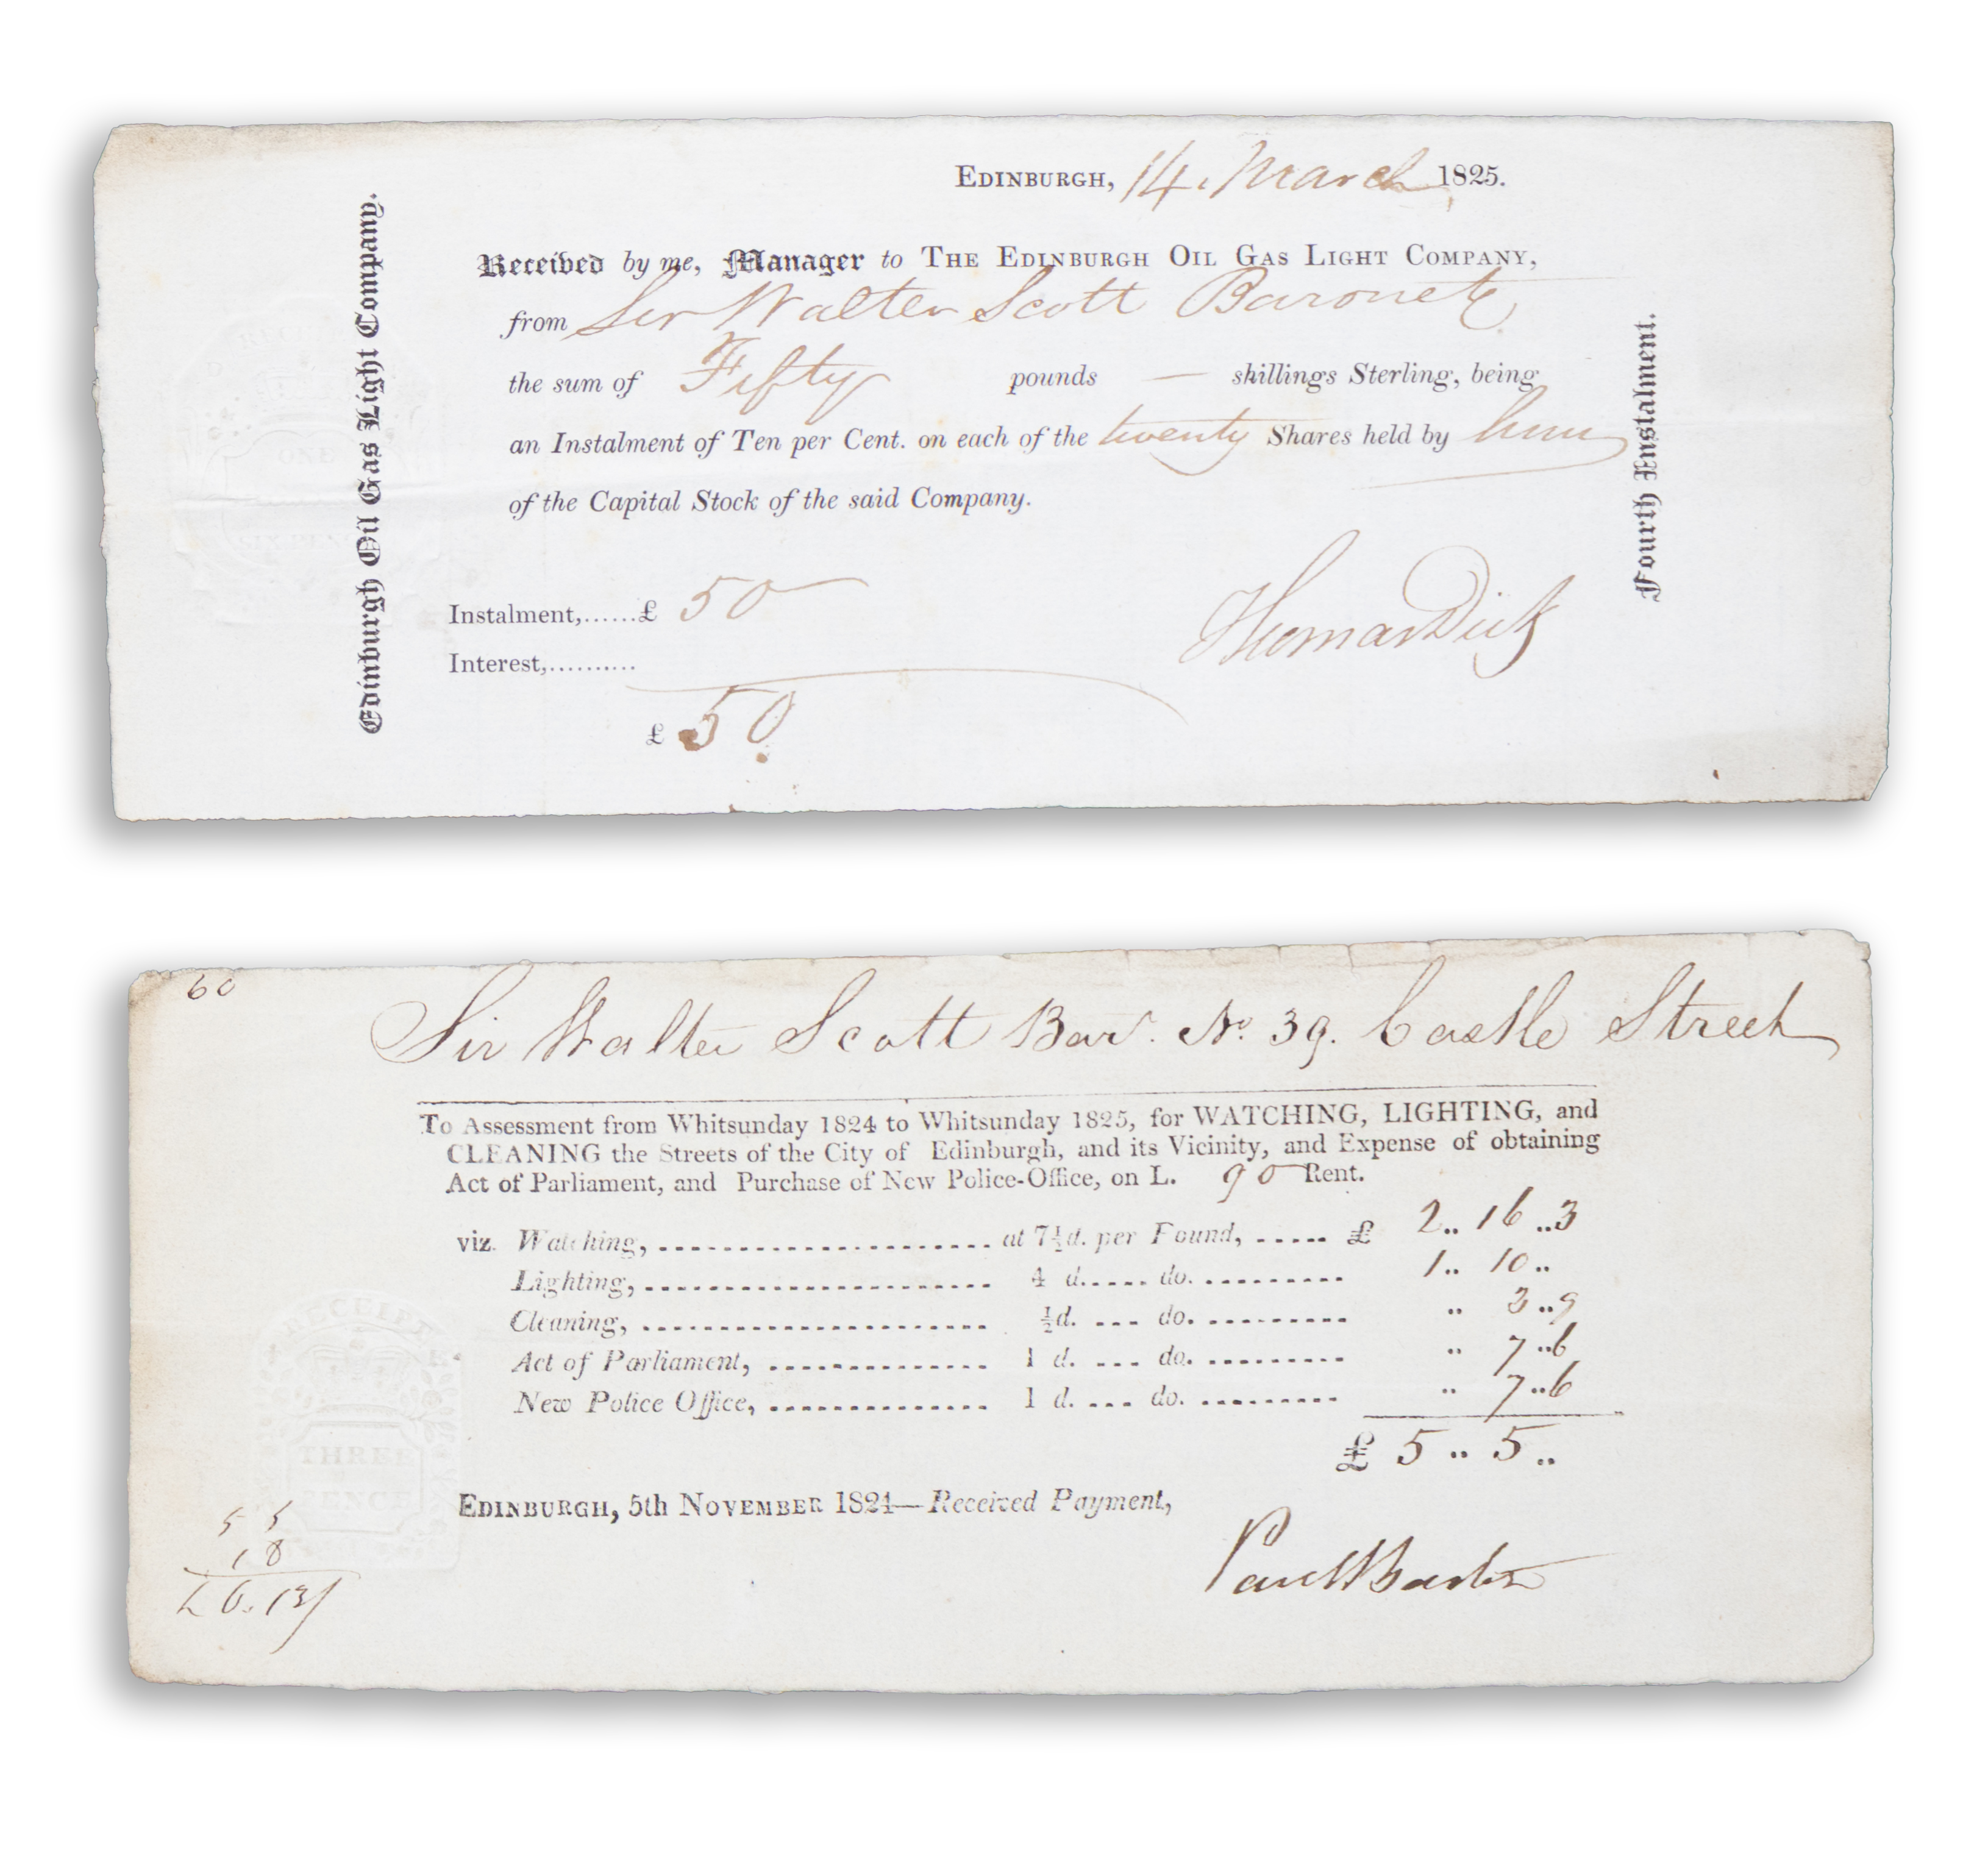 EDINBURGH, 14. March 1825.
Received by me, Manager to THE EDINBURGH OIL GAS LIGHT COMPANY,
from Sir Walter Scott Baronet
the sum of Fifty pounds — shillings Sterling, being
an Instalment of Ten per Cent. on each of the twenty Shares held by him
of the Capital Stock of the said Company.
Instalment,......£ 50
Interest,..........
£ 50
Thomas Dick
Edinburgh Oil Gas Light Company.
Fourth Instalment.
ONE
SIX PENCE
60
Sir Walter Scott Bart. No. 39. Castle Street
To Assessment from Whitsunday 1824 to Whitsunday 1825, for WATCHING, LIGHTING, and
CLEANING the Streets of the City of Edinburgh, and its Vicinity, and Expense of obtaining
Act of Parliament, and Purchase of New Police-Office, on L. 90 Rent.
viz. Watching, ...................... at 7½d. per Pound, ..... £ 2.. 16 ..3
Lighting, ....................... 4 d..... do. ......... 1.. 10 ..
Cleaning, ....................... ½d. ... do. ......... .. 3 ..9
Act of Parliament, .............. 1 d. ... do. ......... .. 7 ..6
New Police Office, .............. 1 d. ... do. ......... .. 7 ..6
£ 5 .. 5 ..
EDINBURGH, 5th NOVEMBER 1824—Received Payment,
RECEIPT
THREE
PENCE
5 5
18
£ 6. 13/